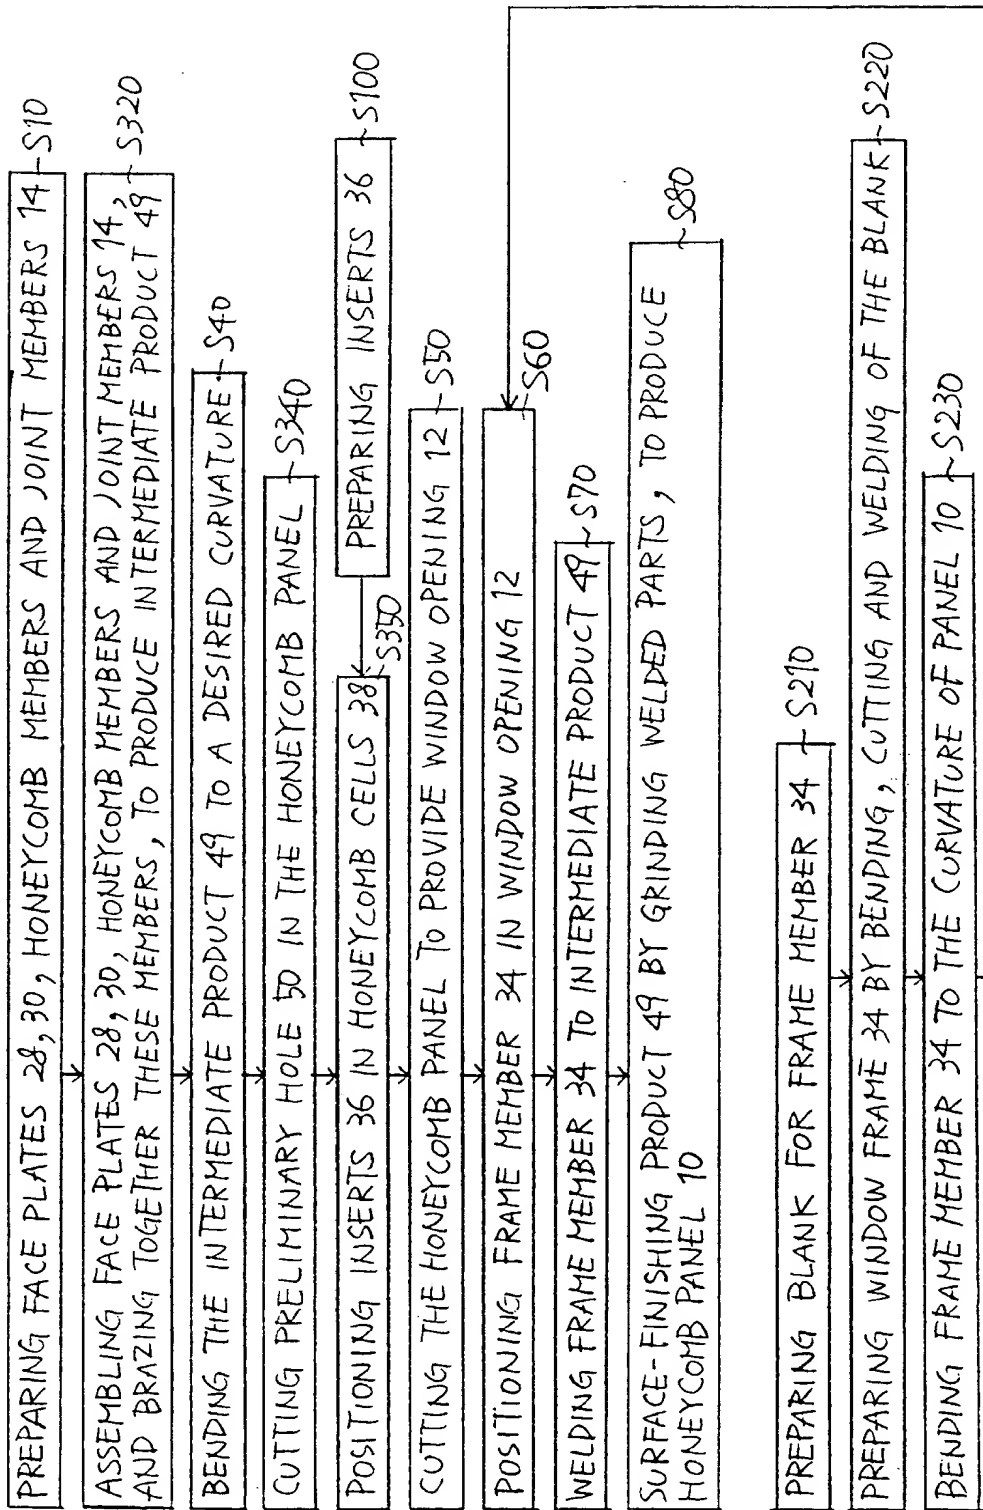 PREPARING FACE PLATES 28, 30, HONEYCOMB MEMBERS AND JOINT MEMBERS 14 ~S10
ASSEMBLING FACE PLATES 28, 30, HONEYCOMB MEMBERS AND JOINT MEMBERS 14, ~S320
AND BRAZING TOGETHER THESE MEMBERS, TO PRODUCE INTERMEDIATE PRODUCT 49
BENDING THE INTERMEDIATE PRODUCT 49 TO A DESIRED CURVATURE ~S40
CUTTING PRELIMINARY HOLE 50 IN THE HONEYCOMB PANEL ~S340
POSITIONING INSERTS 36 IN HONEYCOMB CELLS 38 S350
PREPARING INSERTS 36 ~S100
CUTTING THE HONEYCOMB PANEL TO PROVIDE WINDOW OPENING 12 ~S50
POSITIONING FRAME MEMBER 34 IN WINDOW OPENING 12 ~S60
WELDING FRAME MEMBER 34 TO INTERMEDIATE PRODUCT 49 ~S70
SURFACE-FINISHING PRODUCT 49 BY GRINDING WELDED PARTS, TO PRODUCE ~S80
HONEYCOMB PANEL 10
PREPARING BLANK FOR FRAME MEMBER 34 ~S210
PREPARING WINDOW FRAME 34 BY BENDING, CUTTING AND WELDING OF THE BLANK ~S220
BENDING FRAME MEMBER 34 TO THE CURVATURE OF PANEL 10 ~S230